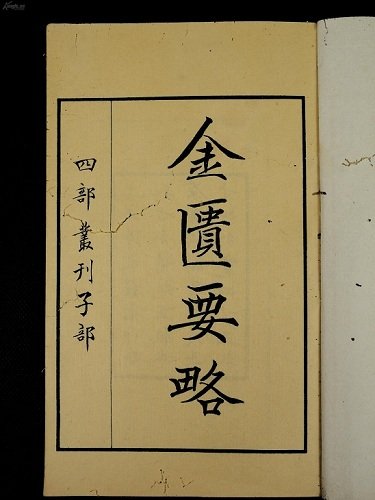 金匱要略
四部叢刊子部